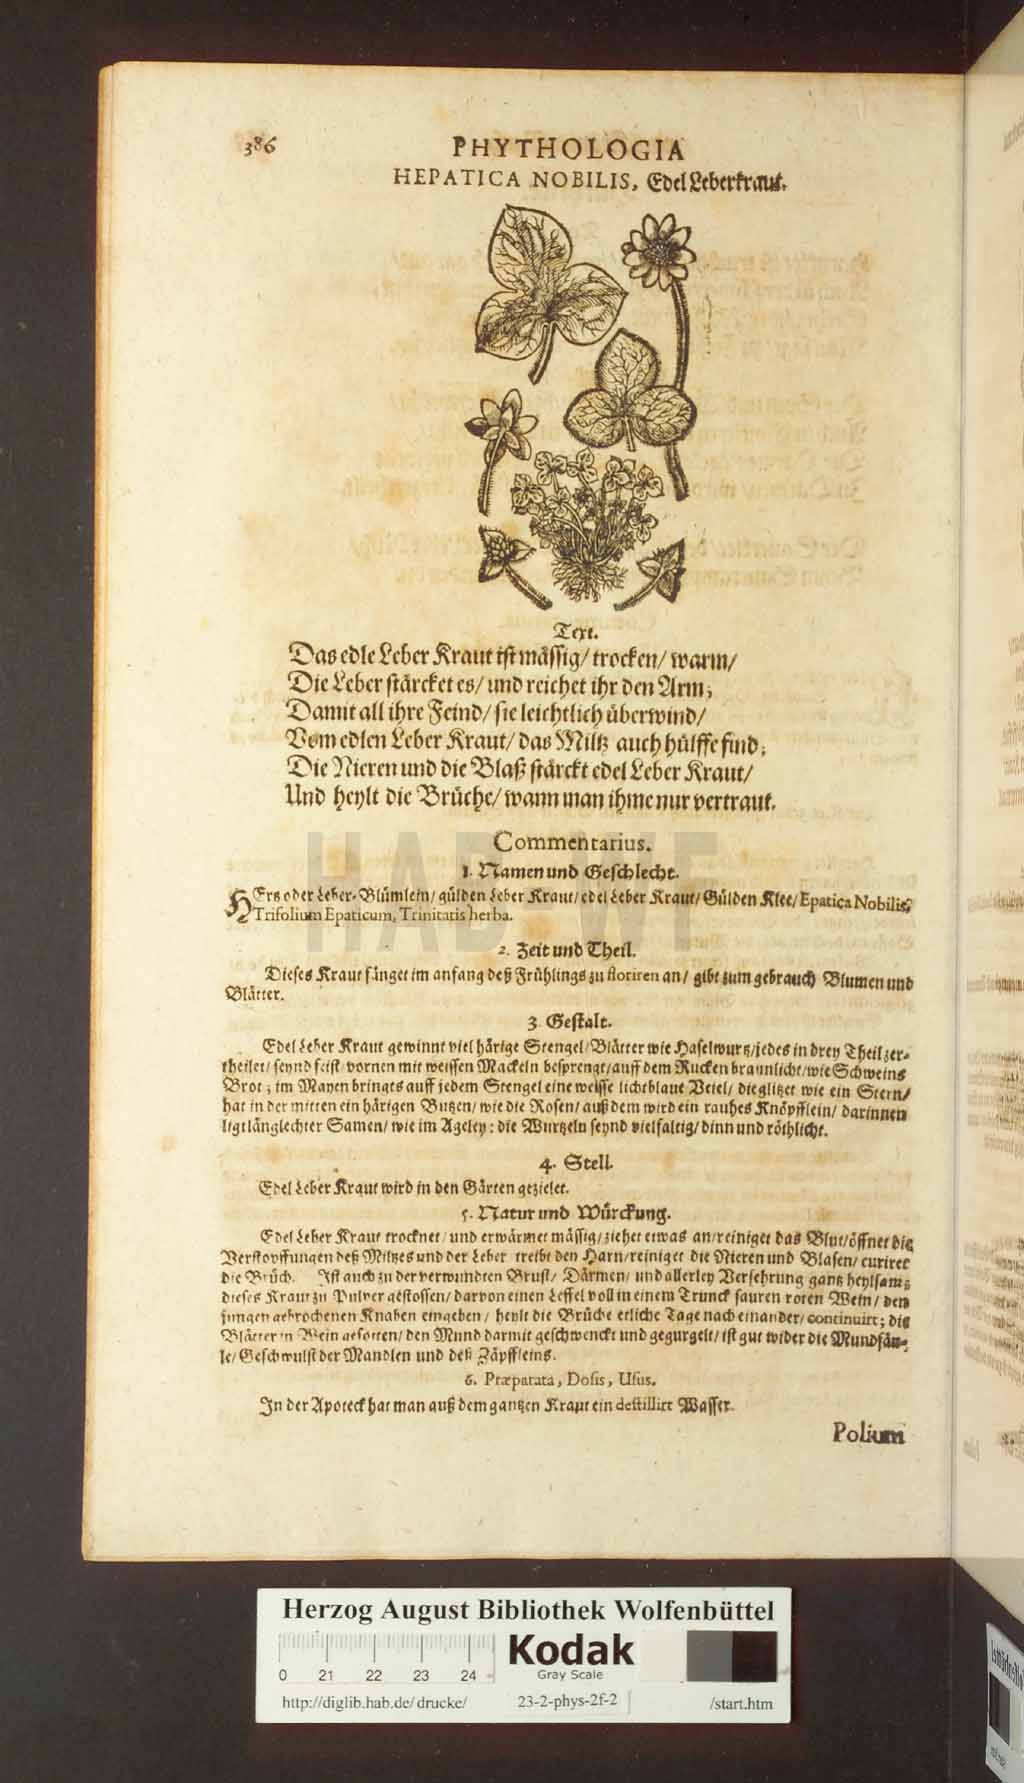 386
PHYTHOLOGIA
HEPATICA NOBILIS, Edel Leberkraut.
Text.
Das edle Leber Kraut ist mässig/ trocken/ warm/
Die Leber stärcket es/ und reichet ihr den Arm;
Damit all ihre Feind/ sie leichtlich überwind/
Vom edlen Leber Kraut/ das Miltz auch hülffe find;
Die Nieren und die Blaß stärckt edel Leber Kraut/
Und heylt die Brüche/ wann man ihme nur vertraut.
Commentarius.
1. Namen und Geschlecht.
HErs oder Leber-Blümlein/ gülden Leber Kraut/ edel Leber Kraut/ Gülden Klee/ Epatica Nobilis,
Trifolium Epaticum, Trinitatis herba.
2. Zeit und Theil.
Dieses Kraut fänget im anfang deß Frühlings zu floriren an/ gibt zum gebrauch Blumen und
Blätter.
3 Gestalt.
Edel Leber Kraut gewinnt viel härige Stengel/ Blätter wie Haselwurtz/ jedes in drey Theil zer-
theilet/ seynd feist vornen mit weissen Mackeln besprengt/ auff dem Rucken braunlicht/ wie Schweins
Brot; im Mayen bringts auff jedem Stengel eine weisse lichtblaue Veiel/ die glitzet wie ein Stern/
hat in der mitten ein härigen Butzen/ wie die Rosen/ auß dem wird ein rauhes Knöpfflein/ darinnen
ligt länglechter Samen/ wie im Ageley: die Wurtzeln seynd vielfaltig/ dinn und röthlicht.
4. Stell.
Edel Leber Kraut wird in den Gärten gezielet.
5. Natur und Würckung.
Edel Leber Kraut trocknet/ und erwärmet mässig/ ziehet etwas an/ reiniget das Blut/ öffnet die
Verstopffungen deß Miltzes und der Leber treibt den Harn/ reiniget die Nieren und Blasen/ curiret
die Brüch. Ist auch zu der verwundten Brust/ Därmen/ und allerley Versehrung gantz heylsam;
dieses Kraut zu Pulver gestossen/ darvon einen Leffel voll in einem Trunck sauren roten Wein/ den
jungen gebrochenen Knaben eingeben/ heylt die Brüche etliche Tage nach einander/ continuirt; die
Blätter in Wein gesotten/ den Mund darmit geschwenckt und gegurgelt/ ist gut wider die Mundfäu-
le/ Geschwulst der Mandlen und deß Zäpffleins.
6. Præparata, Dosis, Usus.
In der Apoteck hat man auß dem gantzen Kraut ein destillirt Wasser.
Polium
HAB WF
Herzog August Bibliothek Wolfenbüttel
Kodak
Gray Scale
0 21 22 23 24
http://diglib.hab.de/drucke/ 23-2-phys-2f-2 /start.htm